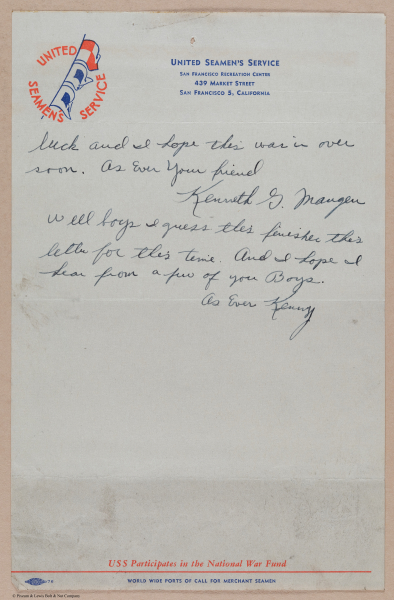 UNITED
SEAMEN'S
SERVICE
UNITED SEAMEN'S SERVICE
SAN FRANCISCO RECREATION CENTER
439 MARKET STREET
SAN FRANCISCO 5, CALIFORNIA
luck and I hope this war is over
soon. As Ever Your friend
Kenneth G. Maugen
Well boys I guess this finishes this
letter for this time. And I hope I
hear from a few of you Boys.
As Ever Kenny
USS Participates in the National War Fund
WORLD WIDE PORTS OF CALL FOR MERCHANT SEAMEN